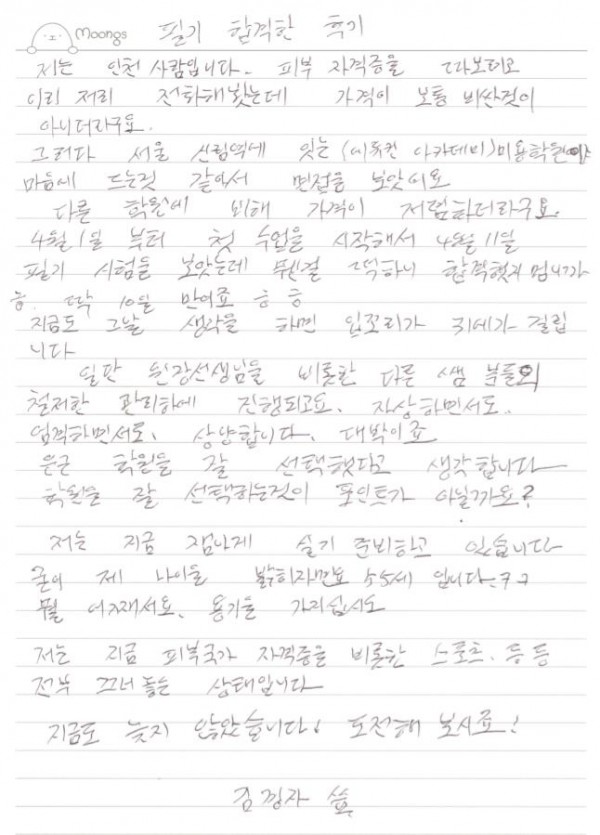 Moongs 필기 합격한 후기
저는 인천 사람입니다. 피부 자격증을 따보려고
이리 저리 전화해봤는데 가격이 보통 비싼것이
아니더라구요.
그러다 서울 신림역에 있는 (뷰티컨 아카데미)미용학원이
마음에 드는것 같아서 면접을 보았어요
다른 학원에 비해 가격이 저렴하더라구요.
4월 1일 부터 첫 수업을 시작해서 4월 11일
필기 시험을 보았는데 웬걸 떡하니 합격했지 멉니가
흠. 딱 10일 만이죠 흠 흠
지금도 그날 생각을 하면 입꼬리가 귀에가 걸립
니다
일판 원장선생님을 비롯한 다른 쌤 분들의
철저한 관리하에 진행되고요. 자상하면서도..
엄격하면서도, 상냥합니다. 대박이죠
은근 학원을 잘 선택했다고 생각합니다
학원을 잘 선택하는것이 포인트가 아닐까요?
저는 지금 잼나게 실기 준비하고 있습니다
굳이 제 나이를 밝히자면요 55세 입니다ㅋㅋ
뭘 어째서요. 용기를 가지십시오
저는 지금 피부국가 자격증을 비롯한 스포츠. 등등
전부 끄너 놓은 상태입니다
지금도 늦지 않았습니다! 도전해 보시죠!
김경자 씀